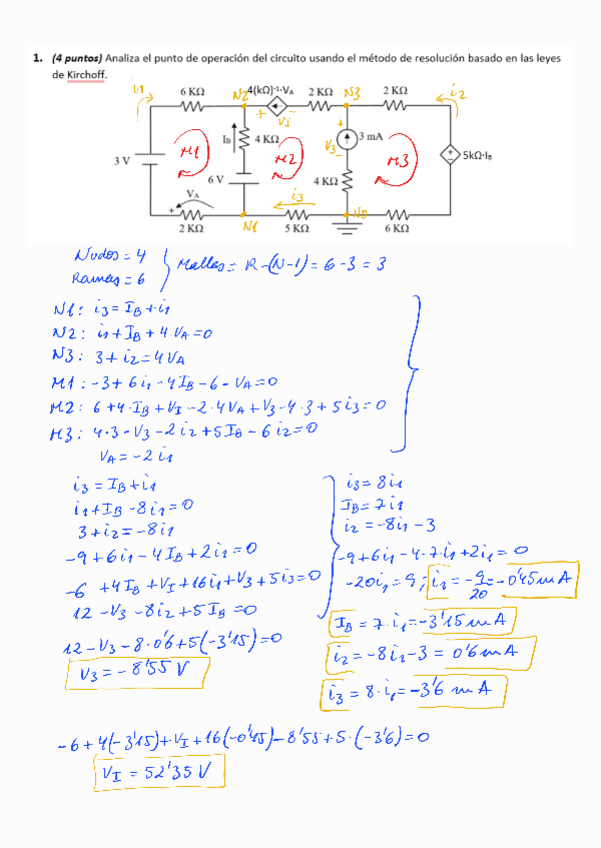 1. (4 puntos) Analiza el punto de operación del circuito usando el método de resolución basado en las leyes
de Kirchoff.
i1 6 KΩ N2 4(kΩ)⁻¹·VA 2 KΩ N3 2 KΩ i2
+ VI -
IB 4 KΩ
3 mA
M1 M2 V3 M3
3 V
5kΩ·IB
6 V
4 KΩ
VA
i3
2 KΩ N1 5 KΩ N0 6 KΩ
Nudos = 4
Ramas = 6
Mallas = R-(N-1) = 6-3 = 3
N1: i3 = IB + i1
N2: i1 + IB + 4·VA = 0
N3: 3 + i2 = 4VA
M1: -3 + 6i1 - 4IB - 6 - VA = 0
M2: 6 + 4·IB + VI - 2·4VA + V3 - 4·3 + 5i3 = 0
M3: 4·3 - V3 - 2i2 + 5IB - 6i2 = 0
VA = -2i1
i3 = IB + i1
i1 + IB - 8i1 = 0
3 + i2 = -8i1
-9 + 6i1 - 4IB + 2i1 = 0
-6 + 4IB + VI + 16i1 + V3 + 5i3 = 0
12 - V3 - 8i2 + 5IB = 0
12 - V3 - 8·0'6 + 5(-3'15) = 0
V3 = -8'55 V
i3 = 8i1
IB = 7i1
i2 = -8i1 - 3
-9 + 6i1 - 4·7i1 + 2i1 = 0
-20i1 = 9; i1 = -9/20 = -0'45 mA
IB = 7·i1 = -3'15 mA
i2 = -8i1 - 3 = 0'6 mA
i3 = 8·i1 = -3'6 mA
-6 + 4(-3'15) + VI + 16(-0'45) - 8'55 + 5·(-3'6) = 0
VI = 52'35 V